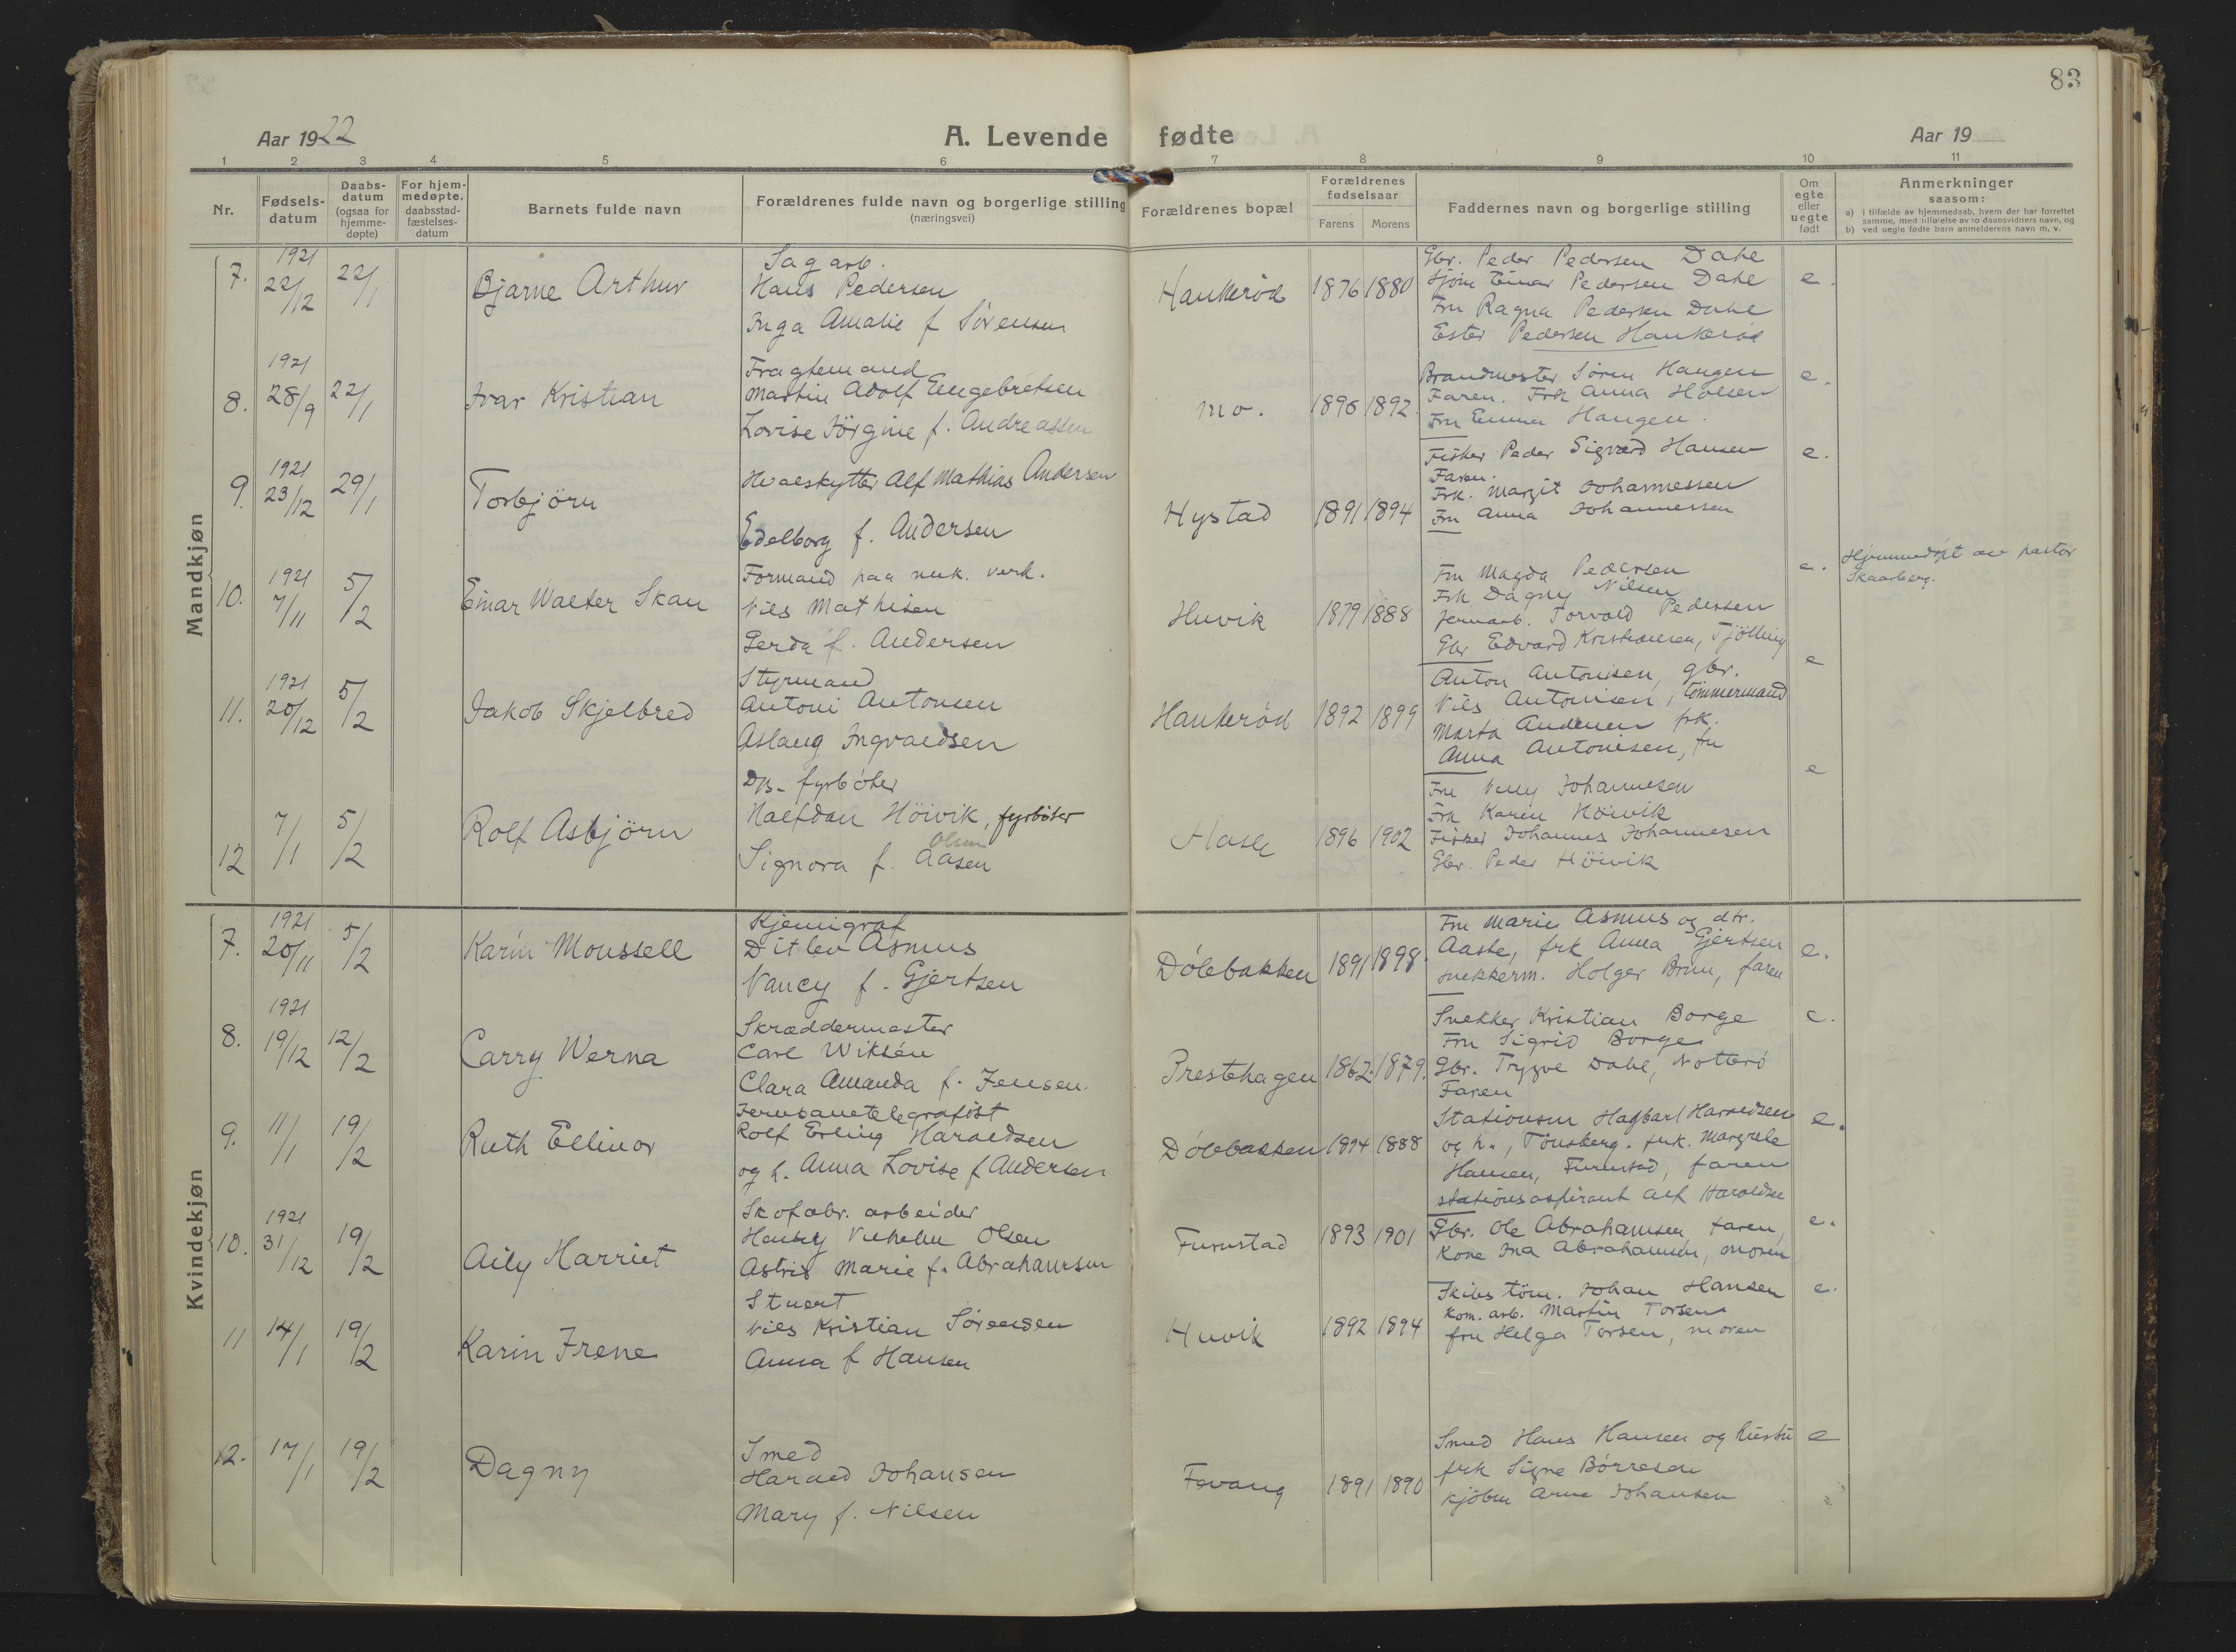 83
Aar 1922
A. Levende fødte
Aar 19
1 2 3 4 5 6 7 8 9 10 11
Nr.
Fødsels-
datum
Daabs-
datum
(ogsaa for
hjemme-
døpte)
For hjem-
medøpte,
daabsstad-
fæstelses-
datum
Barnets fulde navn
Forældrenes fulde navn og borgerlige stilling
(næringsvei)
Forældrenes bopæl
Forældrenes
fødselsaar
Farens Morens
Faddernes navn og borgerlige stilling
Om
egte
eller
uegte
født
Anmerkninger
saasom:
a) I tilfælde av hjemmedaab, hvem der har forrettet
samme, med tilføielse av to daabsvidners navn, og
b) ved uegte fødte barn anmelderens navn m. v.
Mandkjøn
7.
1921
22/12
22/1
Bjarne Arthur
Sagarb.
Hans Pedersen
Inga Amalie f Sörensen
Haukerød
1876 1880
Gbr. Peder Pedersen Dahl
Sjöm Einar Pedersen Dahl
Fru Ragna Pedersen Dahl
Ester Pedersen Haukerød
e.
8.
1921
28/9
22/1
Ivar Kristian
Fragtemand
Martin Adolf Engebretsen
Lovise Jörgine f. Andreassen
Mo.
1896 1892
Brandmester Sören Haugen
Faren. Frk Anna Holsen
Fru Emma Haugen.
e.
9.
1921
23/12
29/1
Torbjörn
Hvalskytter Alf Mathias Andersen
Edelborg f. Andersen
Hystad
1891 1894
Fisker Peder Sigvard Hansen
Faren.
Frk. Margit Johannessen
Fru Anna Johannessen
e.
10.
1921
7/11
5/2
Einar Walter Skau
Formand paa mek. verk.
Nils Mathisen
Gerda f. Andersen
Huvik
1879 1888
Fru Magda Pedersen
Frk Dagny Nilsen
Jernarb. Torvald Pedersen
Gbr Edvard Kristiansen, Tjölling
e.
Hjemmedöpt av pastor
Skaarberg.
11.
1921
20/12
5/2
Jakob Skjelbred
Styrmand
Antoni Antonsen
Aslaug Ingvaldsen
Haukerød
1892 1899
Anton Antonisen, gbr.
Nils Antonisen, tömmermand
Marta Andersen frk.
Anna Antonisen, fru
e
12
7/1
5/2
Rolf Asbjörn
D/s. fyrböter
Halfdan Höivik, fyrböter
Olsen
Signora f. Aasen
Hasle
1896 1902
Fru Nelly Johannesen
Frk Karen Höivik
Fisker Johannes Johannesen
Gbr. Peder Höivik
e
Kvindekjøn
7.
1921
20/11
5/2
Karin Moussell
Kjemigraf
Ditlev Asmus
Nancy f. Gjertsen
Dölebakken
1891 1898
Fru Marie Asmus og dtr.
Aaste, frk Anna Gjertsen
snekkerm. Holger Brun, faren
e.
8.
1921
19/12
12/2
Carry Werna
Skræddermester
Carl Wiksén
Clara Amanda f. Jensen.
Prestehagen
1862. 1879.
Snekker Kristian Borge
Fru Sigrid Borge
Gbr. Trygve Dahl, Nötterö
Faren
e.
9.
11/1
19/2
Ruth Ellinor
Jernbanetelegrafist
Rolf Erling Haraldsen
og h. Anna Lovise f Andersen
Dölebakken
1894 1888
Stationsm Hagbart Haraldsen
og h., Tönsberg. frk. Margrete
Hansen, Furustad, faren
stationsaspirant Alf Haraldsen
e.
10.
1921
31/12
19/2
Aily Harriet
Skofabr. arbeider
Henry Vilhelm Olsen
Astrid Marie f. Abrahamsen
Furustad
1893 1901
Gbr. Ole Abrahamsen, faren,
Kone Ina Abrahamsen, moren
e.
11
14/1
19/2
Karin Irene
Stuert
Nils Kristian Sörensen
Anna f Hansen
Huvik
1892 1894
Skibstöm. Johan Hansen
Kom. arb. Martin Torsen
fru Helga Torsen, moren
e.
12.
17/1
19/2
Dagny
Smed
Harald Johansen
Mary f. Nilsen
Fevang
1891 1890
Smed Hans Hansen og hustru
frk Signe Börresen
kjöbm Arne Johansen
e